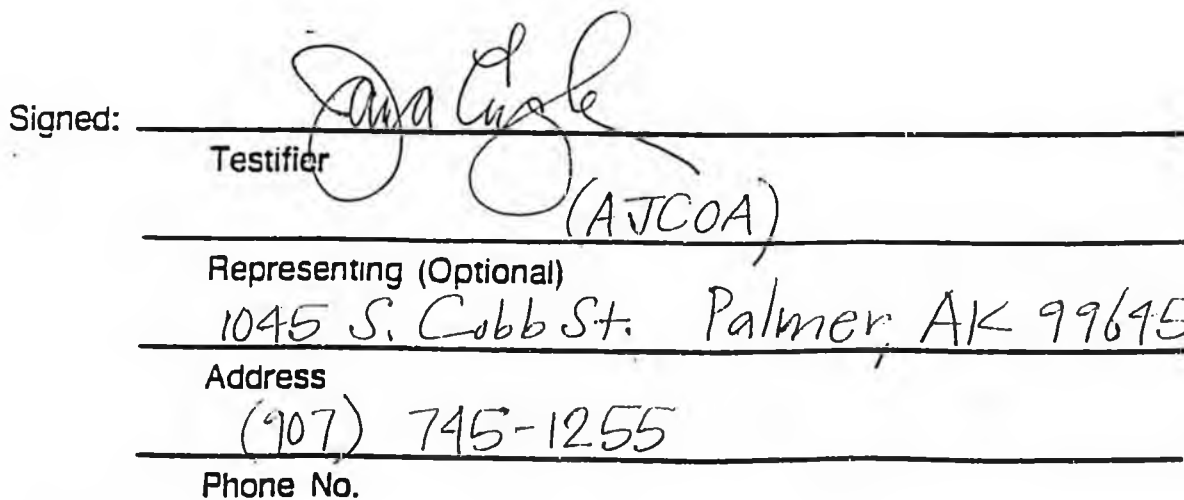 Signed:
Testifier
(AJCOA)
Representing (Optional)
1045 S. Cobb St. Palmer, AK 99645
Address
(907) 745-1255
Phone No.